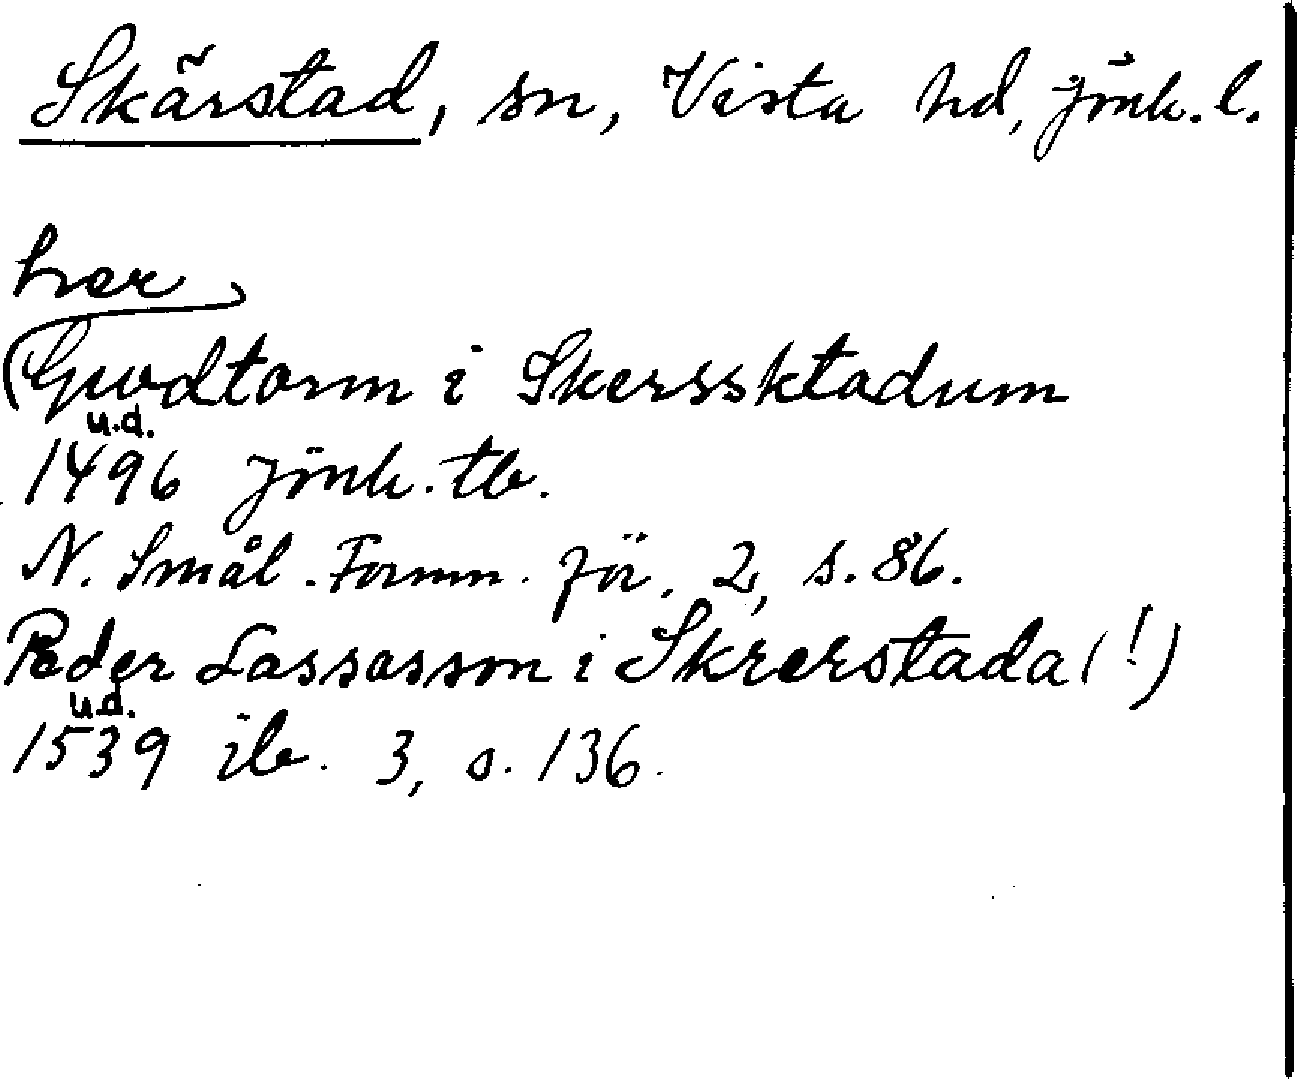 Skärstad, sn, Vista hd, Jönk. l.
her
(Gwdtorm i Skerssktadum
u.d.
1496 Jönk. tb.
N. Smål. Fornm. för. 2, s. 86.
Peder Lassasson i Skrerstada (!)
u.d.
1539 ib. 3, s. 136.